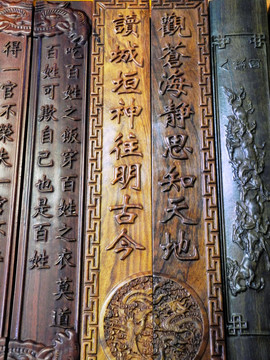 觀蒼海靜思知天地
讀城垣神往明古今
吃百姓之飯穿百姓之衣莫道
百姓可欺自己也是百姓
得一官不榮失一官不